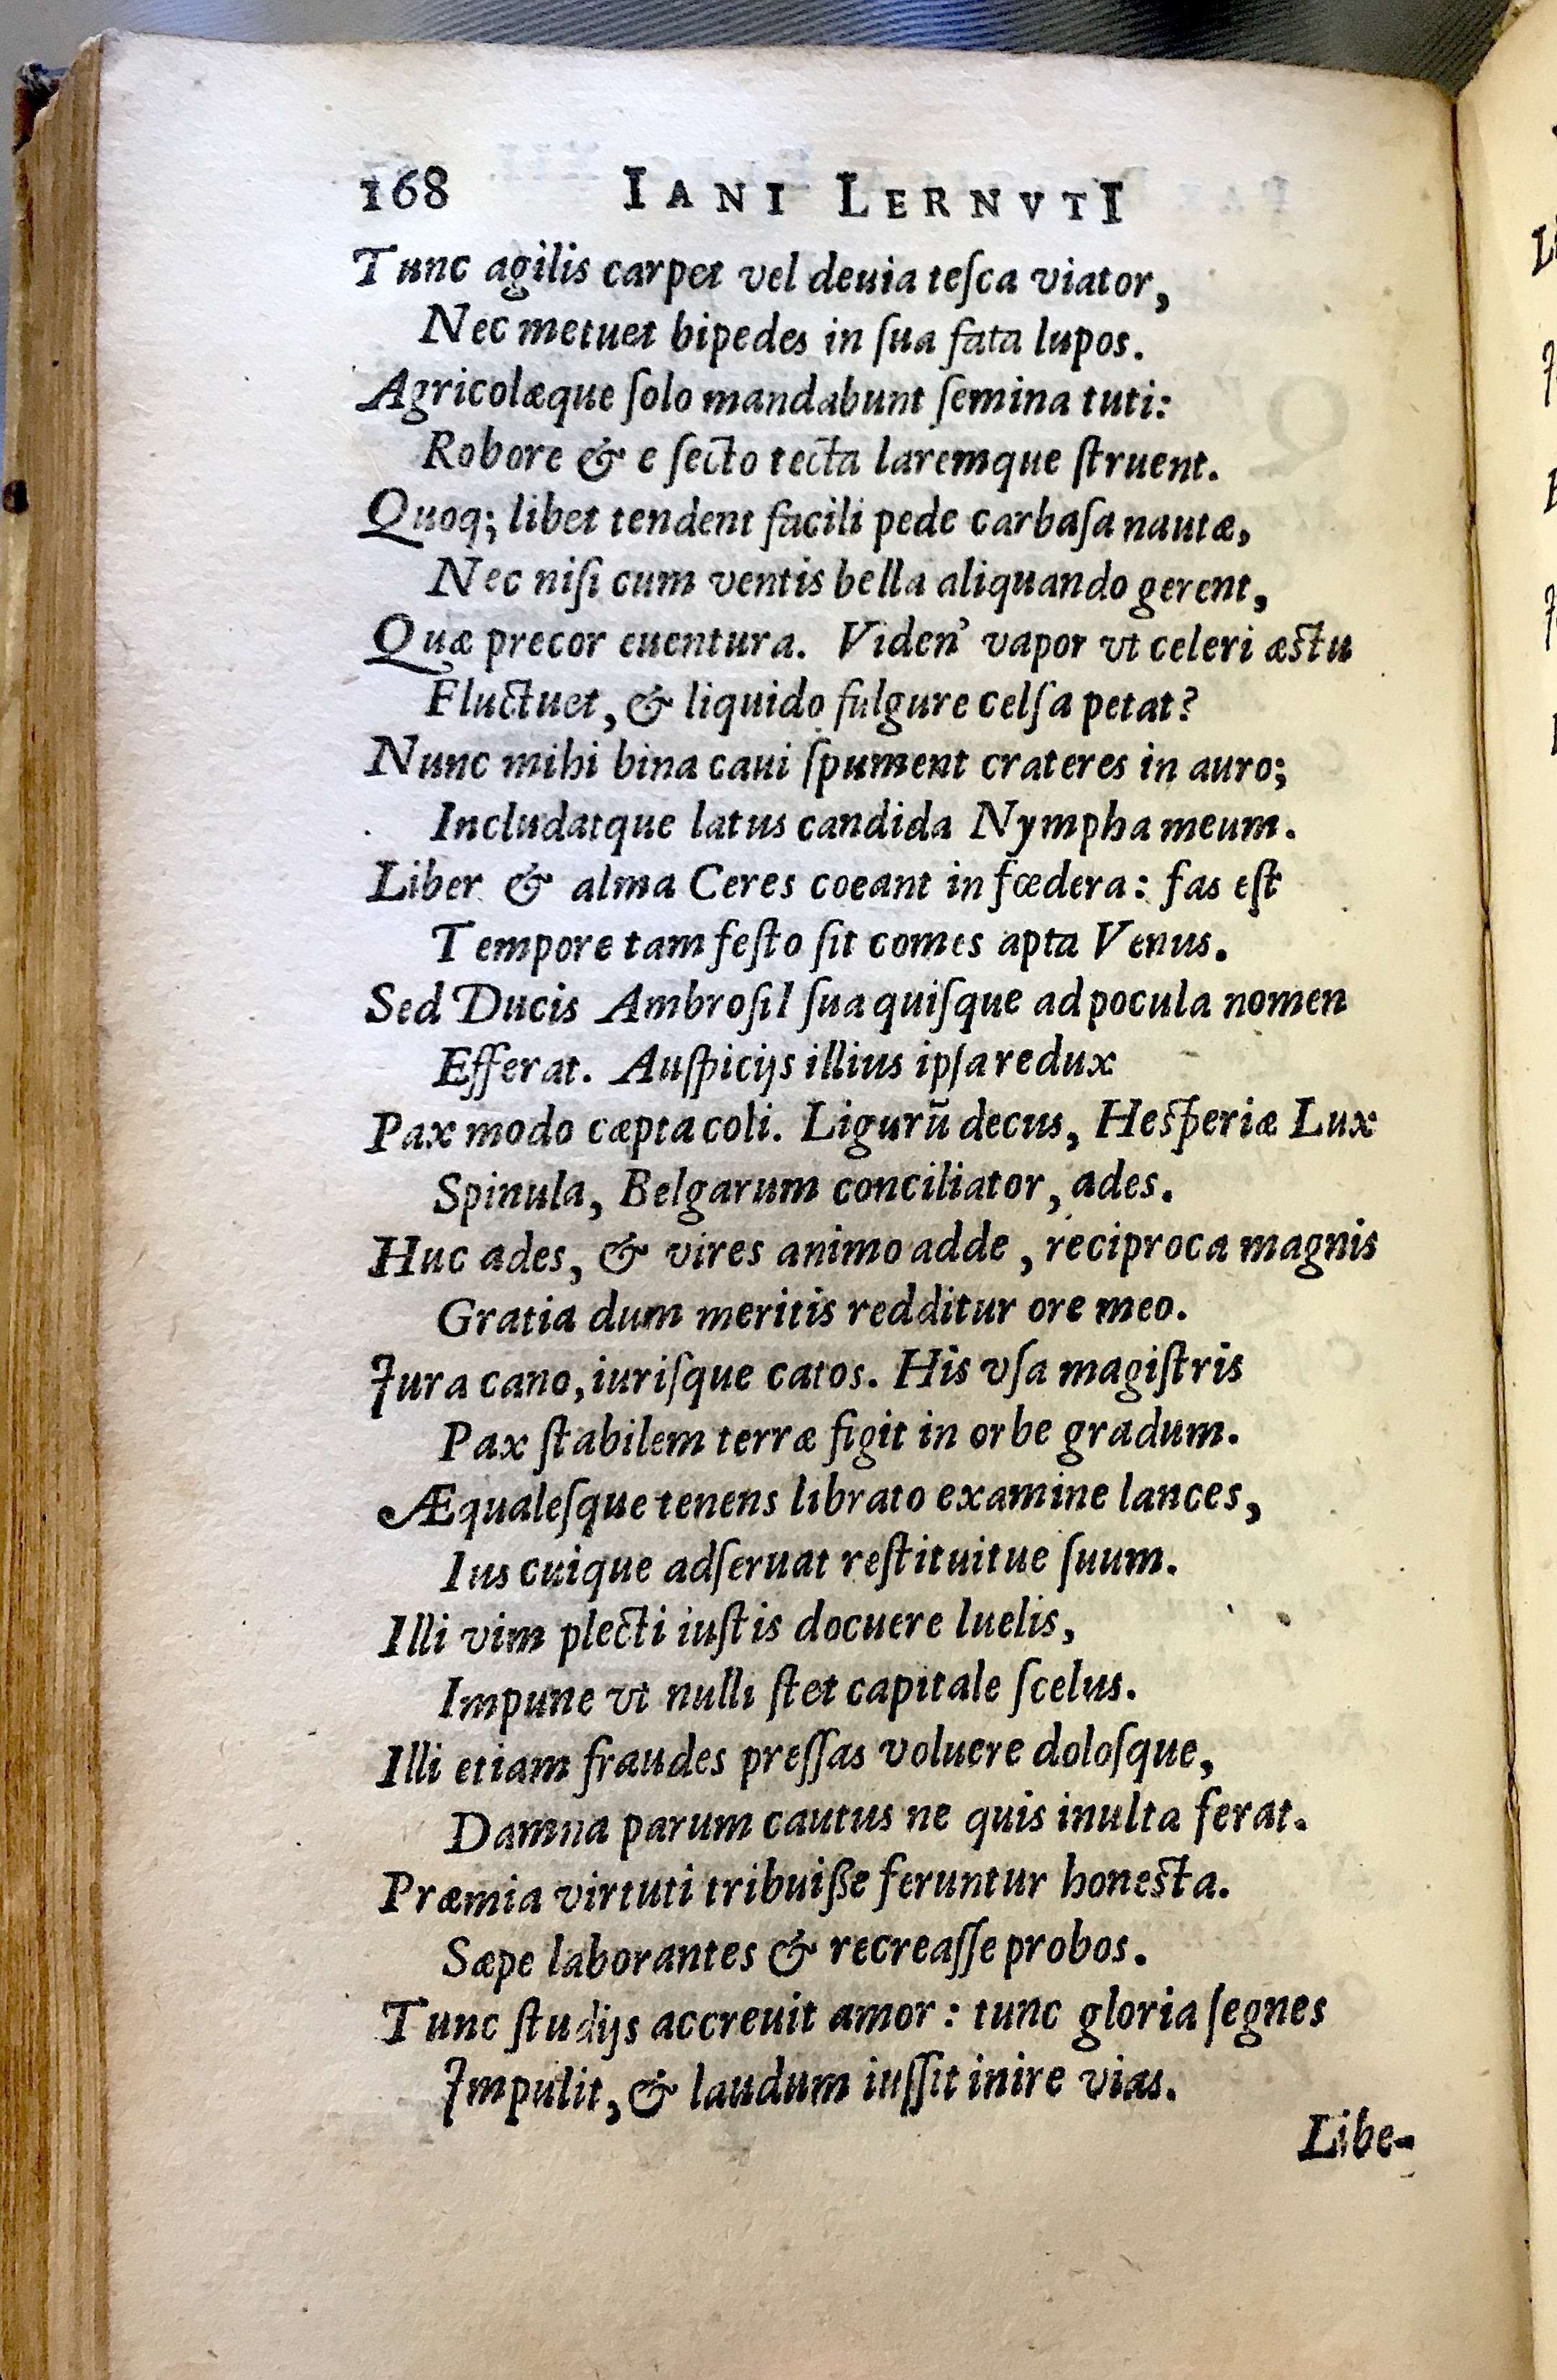 168 IANI LERNVTI
Tunc agilis carpet vel deuia teſca viator,
Nec metuet bipedes in ſua fata lupos.
Agricolæque ſolo mandabunt ſemina tuti:
Robore & e ſecto tecta laremque ſtruent.
Quoq; libet tendent facili pede carbaſa nautæ,
Nec niſi cum ventis bella aliquando gerent,
Quæ precor euentura. Viden' vapor vt celeri æstu
Fluctuet, & liquido fulgure celſa petat?
Nunc mihi bina caui ſpument crateres in auro;
Includatque latus candida Nympha meum.
Liber & alma Ceres coeant in fœdera: fas eſt
Tempore tam feſto ſit comes apta Venus.
Sed Ducis AmbroſiI ſua quiſque ad pocula nomen
Efferat. Auſpicijs illius ipſa redux
Pax modo cæpta coli. Ligurū decus, Hesperiæ Lux
Spinula, Belgarum conciliator, ades.
Huc ades, & vires animo adde, reciproca magnis
Gratia dum meritis redditur ore meo.
Jura cano, iuriſque catos. His vſa magiſtris
Pax ſtabilem terræ figit in orbe gradum.
Æqualeſque tenens librato examine lances,
Ius cuique adſeruat reſtituitue ſuum.
Illi vim plecti iuſtis docuere luelis,
Impune vt nulli ſtet capitale ſcelus.
Illi etiam fraudes preſſas voluere doloſque,
Damna parum cautus ne quis inulta ferat.
Præmia virtuti tribuiße feruntur honesta.
Sæpe laborantes & recreaſſe probos.
Tunc ſtudijs accreuit amor: tunc gloria ſegnes
Jmpulit, & laudum iuſſit inire vias.
Libe-